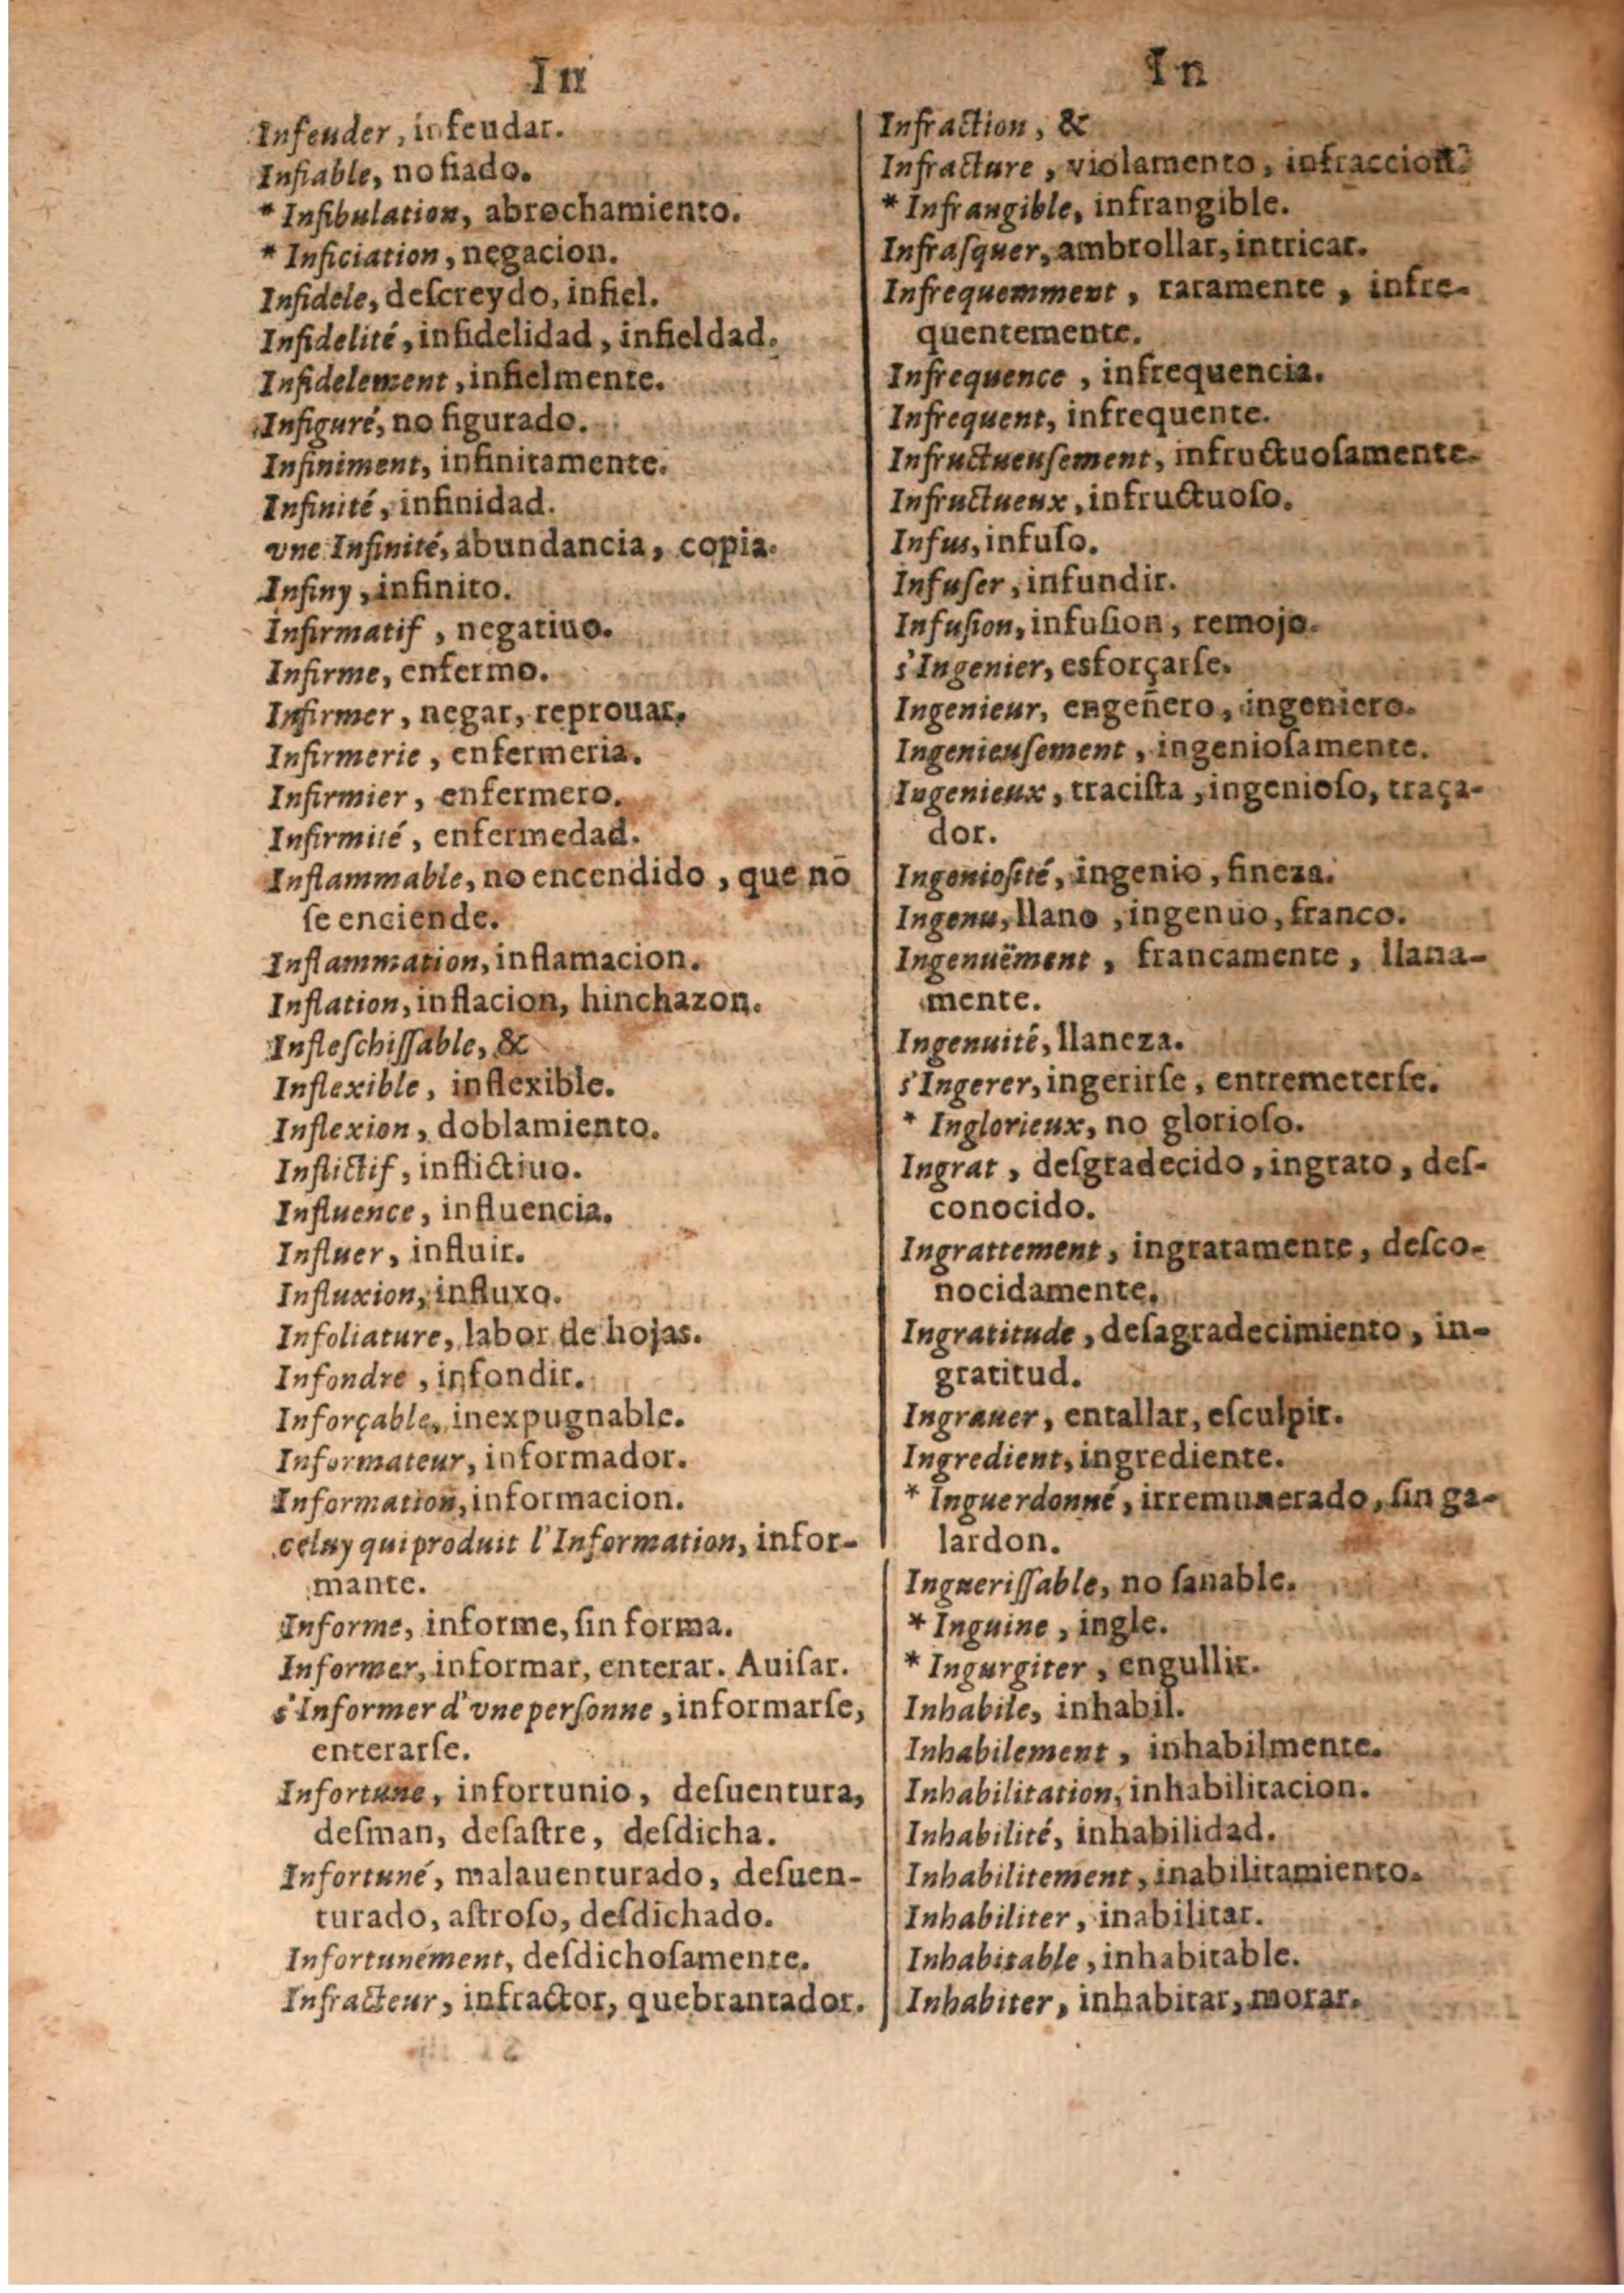 In
Infeuder, infeudar.
Infiable, no fiado.
* Infibulation, abrochamiento.
* Inficiation, negacion.
Infidele, deſcreydo, infiel.
Infidelité, infidelidad, infieldad.
Infidelement, infielmente.
Infiguré, no figurado.
Infiniment, infinitamente.
Infinité, infinidad.
vne Infinité, abundancia, copia.
Infiny, infinito.
Infirmatif, negatiuo.
Infirme, enfermo.
Infirmer, negar, reprouar.
Infirmerie, enfermeria.
Infirmier, enfermero.
Infirmité, enfermedad.
Inflammable, no encendido, que nō
ſe enciende.
Inflammation, inflamacion.
Inflation, inflacion, hinchazon.
Infleſchiſſable, &
Inflexible, inflexible.
Inflexion, doblamiento.
Inflictif, inflictiuo.
Influence, influencia.
Influer, influir.
Influxion, influxo.
Infoliature, labor de hojas.
Infondre, infondir.
Inforçable, inexpugnable.
Informateur, informador.
Information, informacion.
celuy qui produit l'Information, infor-
mante.
Informe, informe, ſin forma.
Informer, informar, enterar. Auiſar.
s'Informer d'vne perſonne, informarſe,
enterarſe.
Infortune, infortunio, deſuentura,
deſman, deſaſtre, deſdicha.
Infortuné, malauenturado, deſuen-
turado, aſtroſo, deſdichado.
Infortunément, deſdichoſamente.
Infracteur, infractor, quebrantador.
In
Infraction, &
Infracture, violamento, infraccion.
* Infrangible, infrangible.
Infraſquer, ambrollar, intricar.
Infrequemment, raramente, infre-
quentemente.
Infrequence, infrequencia.
Infrequent, infrequente.
Infructueuſement, infructuoſamente.
Infructueux, infructuoſo.
Infus, infuſo.
Infuſer, infundir.
Infuſion, infuſion, remojo.
s'Ingenier, esforçarſe.
Ingenieur, engeñero, ingeniero.
Ingenieuſement, ingenioſamente.
Iugenieux, traciſta, ingenioſo, traça-
dor.
Ingenioſité, ingenio, fineza.
Ingenu, llano, ingenuo, franco.
Ingenuëment, francamente, llana-
mente.
Ingenuité, llaneza.
s'Ingerer, ingerirſe, entremeterſe.
* Inglorieux, no glorioſo.
Ingrat, deſgradecido, ingrato, deſ-
conocido.
Ingrattement, ingratamente, deſco-
nocidamente.
Ingratitude, deſagradecimiento, in-
gratitud.
Ingrauer, entallar, eſculpir.
Ingredient, ingrediente.
* Inguerdonné, irremunerado, ſin ga-
lardon.
Ingueriſſable, no ſanable.
* Inguine, ingle.
* Ingurgiter, engullir.
Inhabile, inhabil.
Inhabilement, inhabilmente.
Inhabilitation, inhabilitacion.
Inhabilité, inhabilidad.
Inhabilitement, inabilitamiento.
Inhabiliter, inabilitar.
Inhabitable, inhabitable.
Inhabiter, inhabitar, morar.